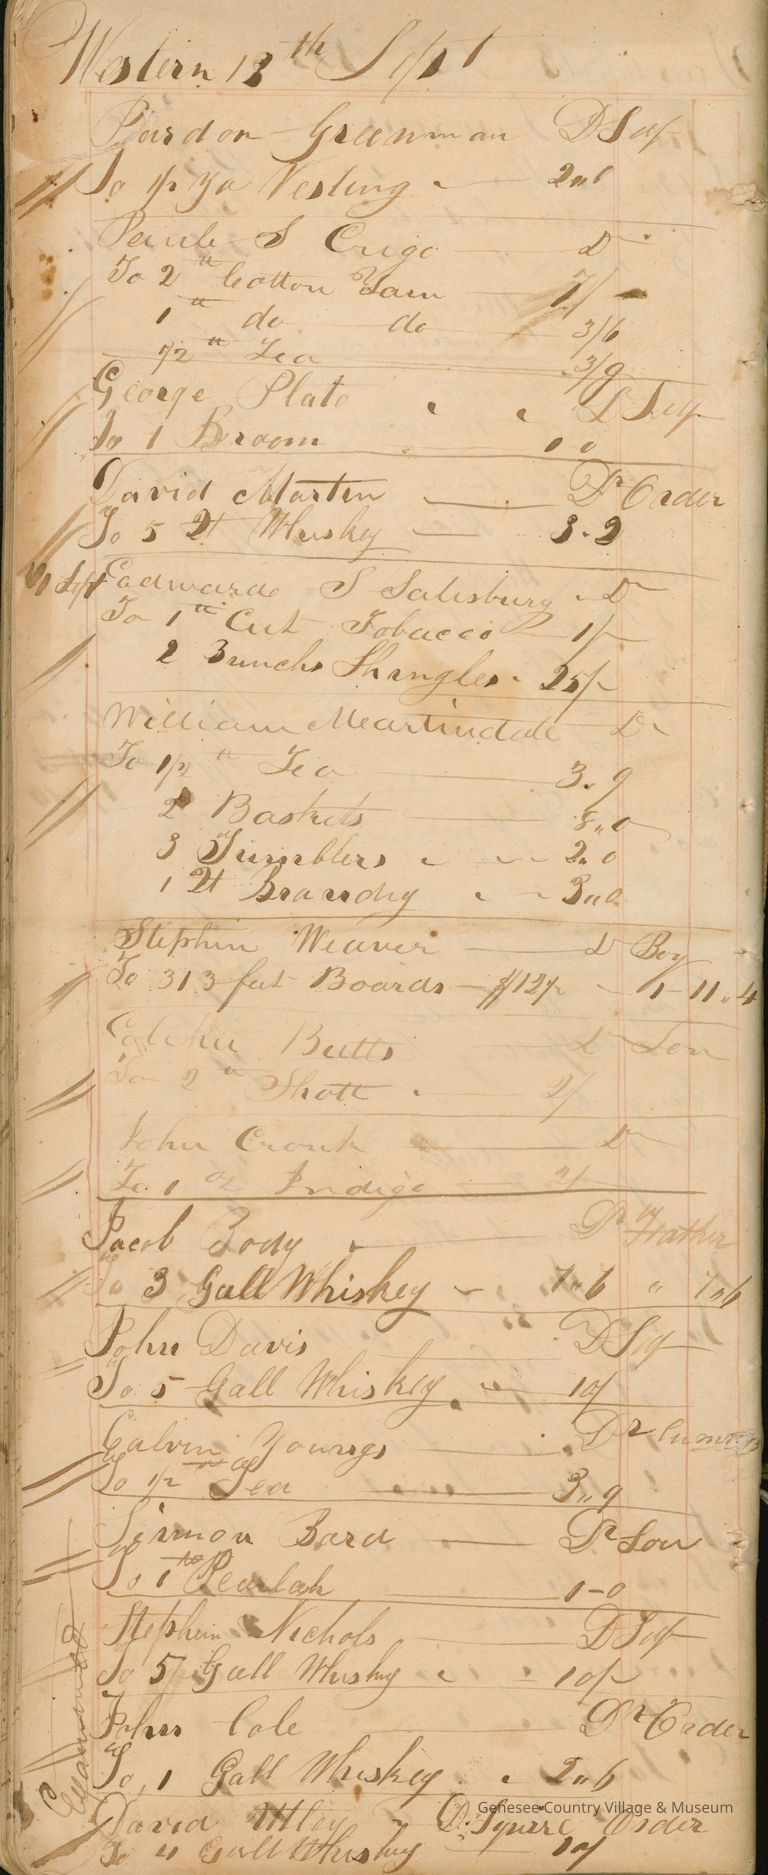 Western 13th Sept
Pardon Greenman D Self
To 1/2 yd Vesting 2"6
S Crego D
To 2 lb Cotton Yarn 7/-
1 lb do do 3/6
1/2 lb Tea 3/9
George Plato D Self
To 1 Broom 1 0
David Martin Dr Order
To 5 Qt Whiskey 3.2
Sept Edwards S Salisbury D
To 1 lb Cut Tobacco 1/-
2 Bunchs Shingles 25/-
William Martindale Dr
To 1/2 lb Tea 3"9
2 Baskets 8"0
3 Tumblers 2"0
1 Qt Brandy 3"0
Stephen Weaver D Boy
To 313 feet Boards 12/- 1-11"4
Butts D Son
To 2 lb Shott 2/
John Cronk D
To 1 oz Indigo 2/
Jacob Body Dr Father
To 3 Gall Whiskey 7"6 " 7"6
John Davis D Self
To 5 Gall Whiskey 10/
Calvin Youngs Dr
To 1/2 Tea 3"9
Simon Bard Dr Son
To 1 lb Pearlash 1-0
Stephen Nichols D Self
To 5 Gall Whisky 10/-
John Cole Dr Order
To 1 Gall Whiskey 2"6
David Utley D. Squire Order
To 4 Gall Whiskey 10/
Examined
Genesee Country Village & Museum